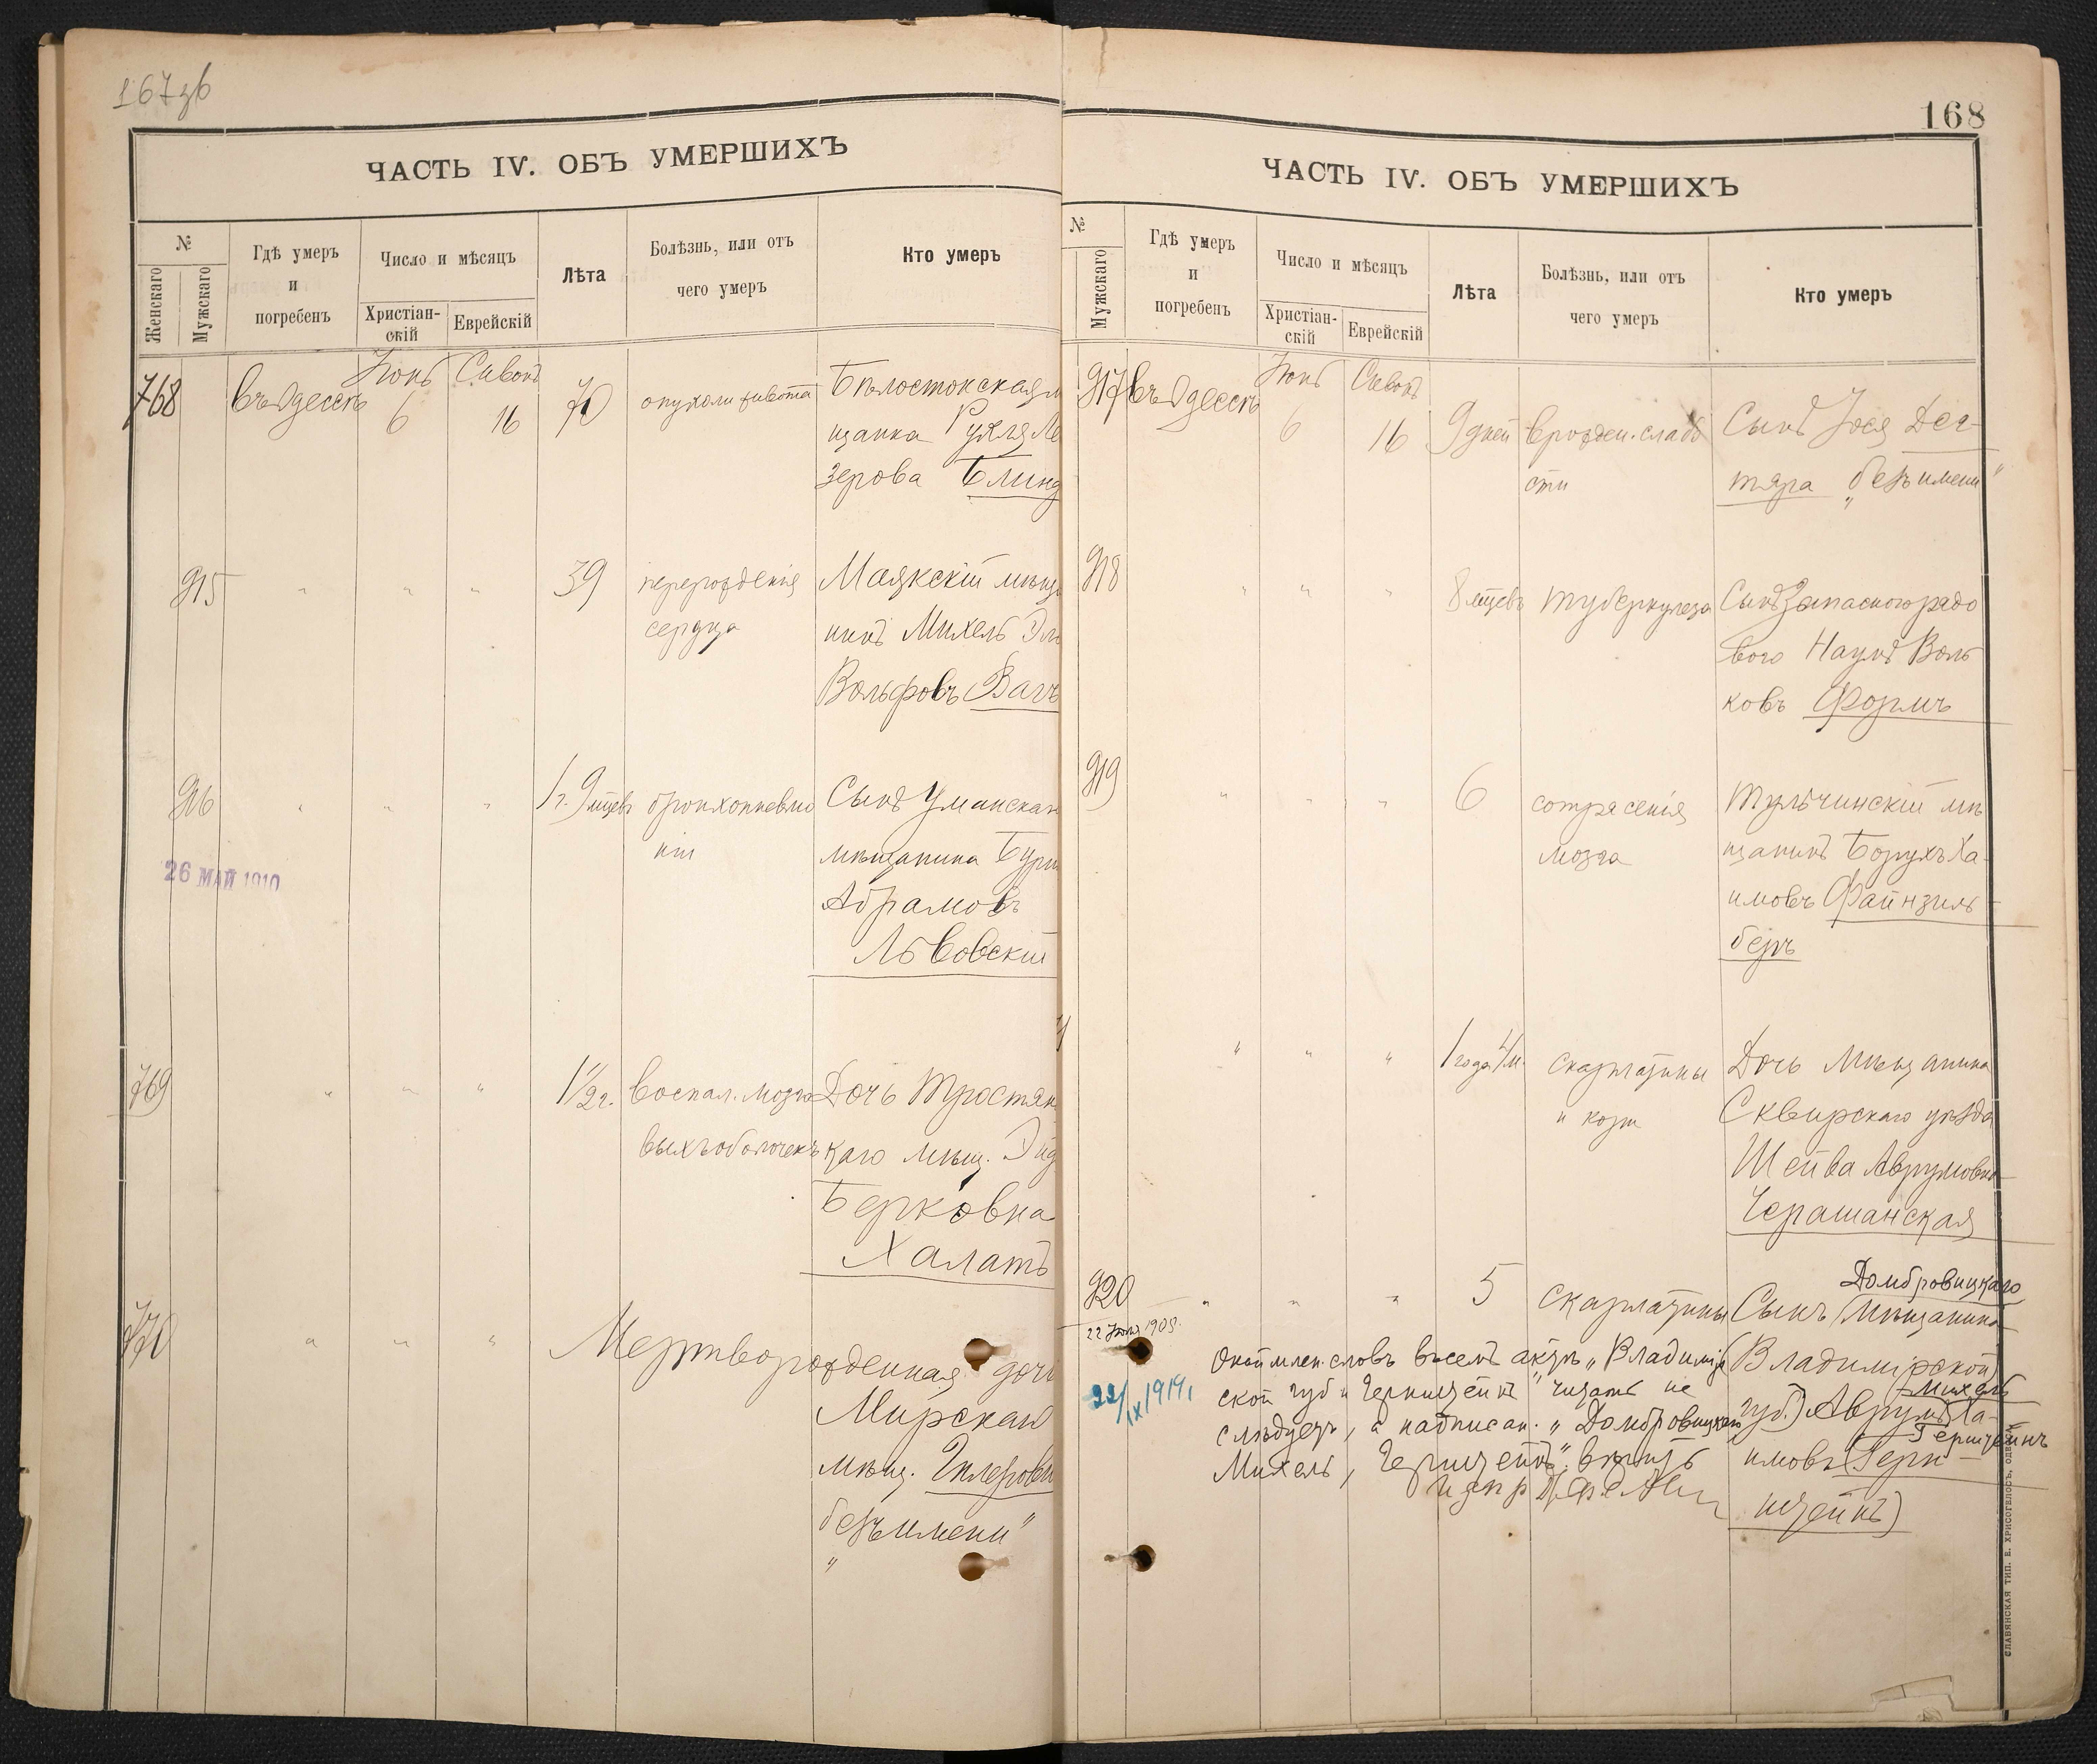 167
ЧАСТЬ IV. ОБЪ УМЕРШИХЪ
№
Женскаго
Мужскаго
Гдѣ умеръ
и
погребенъ
Число и мѣсяцъ
Христіан-
скій
Еврейскій
Лѣта
Болѣзнь, или отъ
чего умеръ
Кто умеръ
768
въ Одессѣ
Іюнь
6
Сивонъ
16
70
опухоли живота
Бѣлостокская м
щанка Рухля Ле
зерова Блинд
915
" " "
39
перерожденія
сердца
Маякскій мѣща
нинъ Михель
Вольфовъ Вагъ
916
" " "
1 г. 9 мцевъ
бронхопневмо
ніи
Сынъ Уманскаг
мѣщанина
Абрамовъ
Львовскій
26 МАЙ 1910
769
" " "
1 1/2 г.
воспал. мозго
выхъ оболочекъ
Дочь Тростян
цаго мѣщ.
Берковна
Халатъ
770
" " "
Мертворожденная дочь
Мирскаго
мѣщ.
"безъ имени"
168
ЧАСТЬ IV. ОБЪ УМЕРШИХЪ
№
Мужскаго
Гдѣ умеръ
и
погребенъ
Число и мѣсяцъ
Христіан-
скій
Еврейскій
Лѣта
Болѣзнь, или отъ
чего умеръ
Кто умеръ
917
въ Одессѣ
Іюнь
6
Сивонъ
16
9 дней
врожден. слабо
сти
Сынъ Іося Дег-
тяра "безъ имени"
918
" " "
8 мцевъ
туберкулеза
Сынъ Запасного рядо
вого Наумъ Воль
ковъ Формъ
919
" " "
6
сотрясенія
мозга
Тульчинскій мѣ
щанинъ Борухъ Ха-
имовъ Файнзиль-
беръ
" " "
1 года 4 м.
скарлатины
и кори
Дочь мѣщанина
Сквирскаго уѣзда
Шейва Аврумовна
Черашанская
920
22 Іюля 1909.
22/IX 1914
" " "
5
скарлатины
Домбровицкаго
Сынъ (мѣщанина
Владимірской
Михель
губ.) Аврумъ Ха-
Герщейнъ
имовъ (Герн-
щейнъ)
словъ въ семъ актѣ "Владимір
ской губ и Гернщейнъ" читать не
слѣдуетъ, а надписан. "Домбровицкаго
Михель, Герщейнъ" вѣрить
СЛАВЯНСКАЯ ТИП. Е. ХРИСОГЕЛОСЪ, ОДЕССА